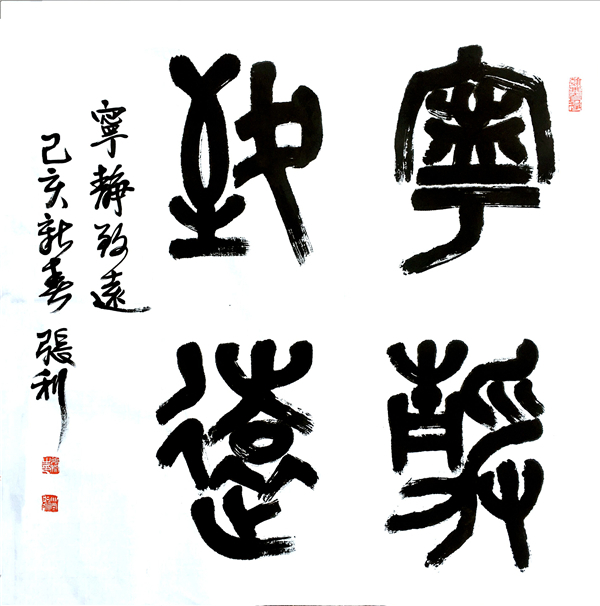 寧靜
致遠
寧靜致遠
己亥新春 張利